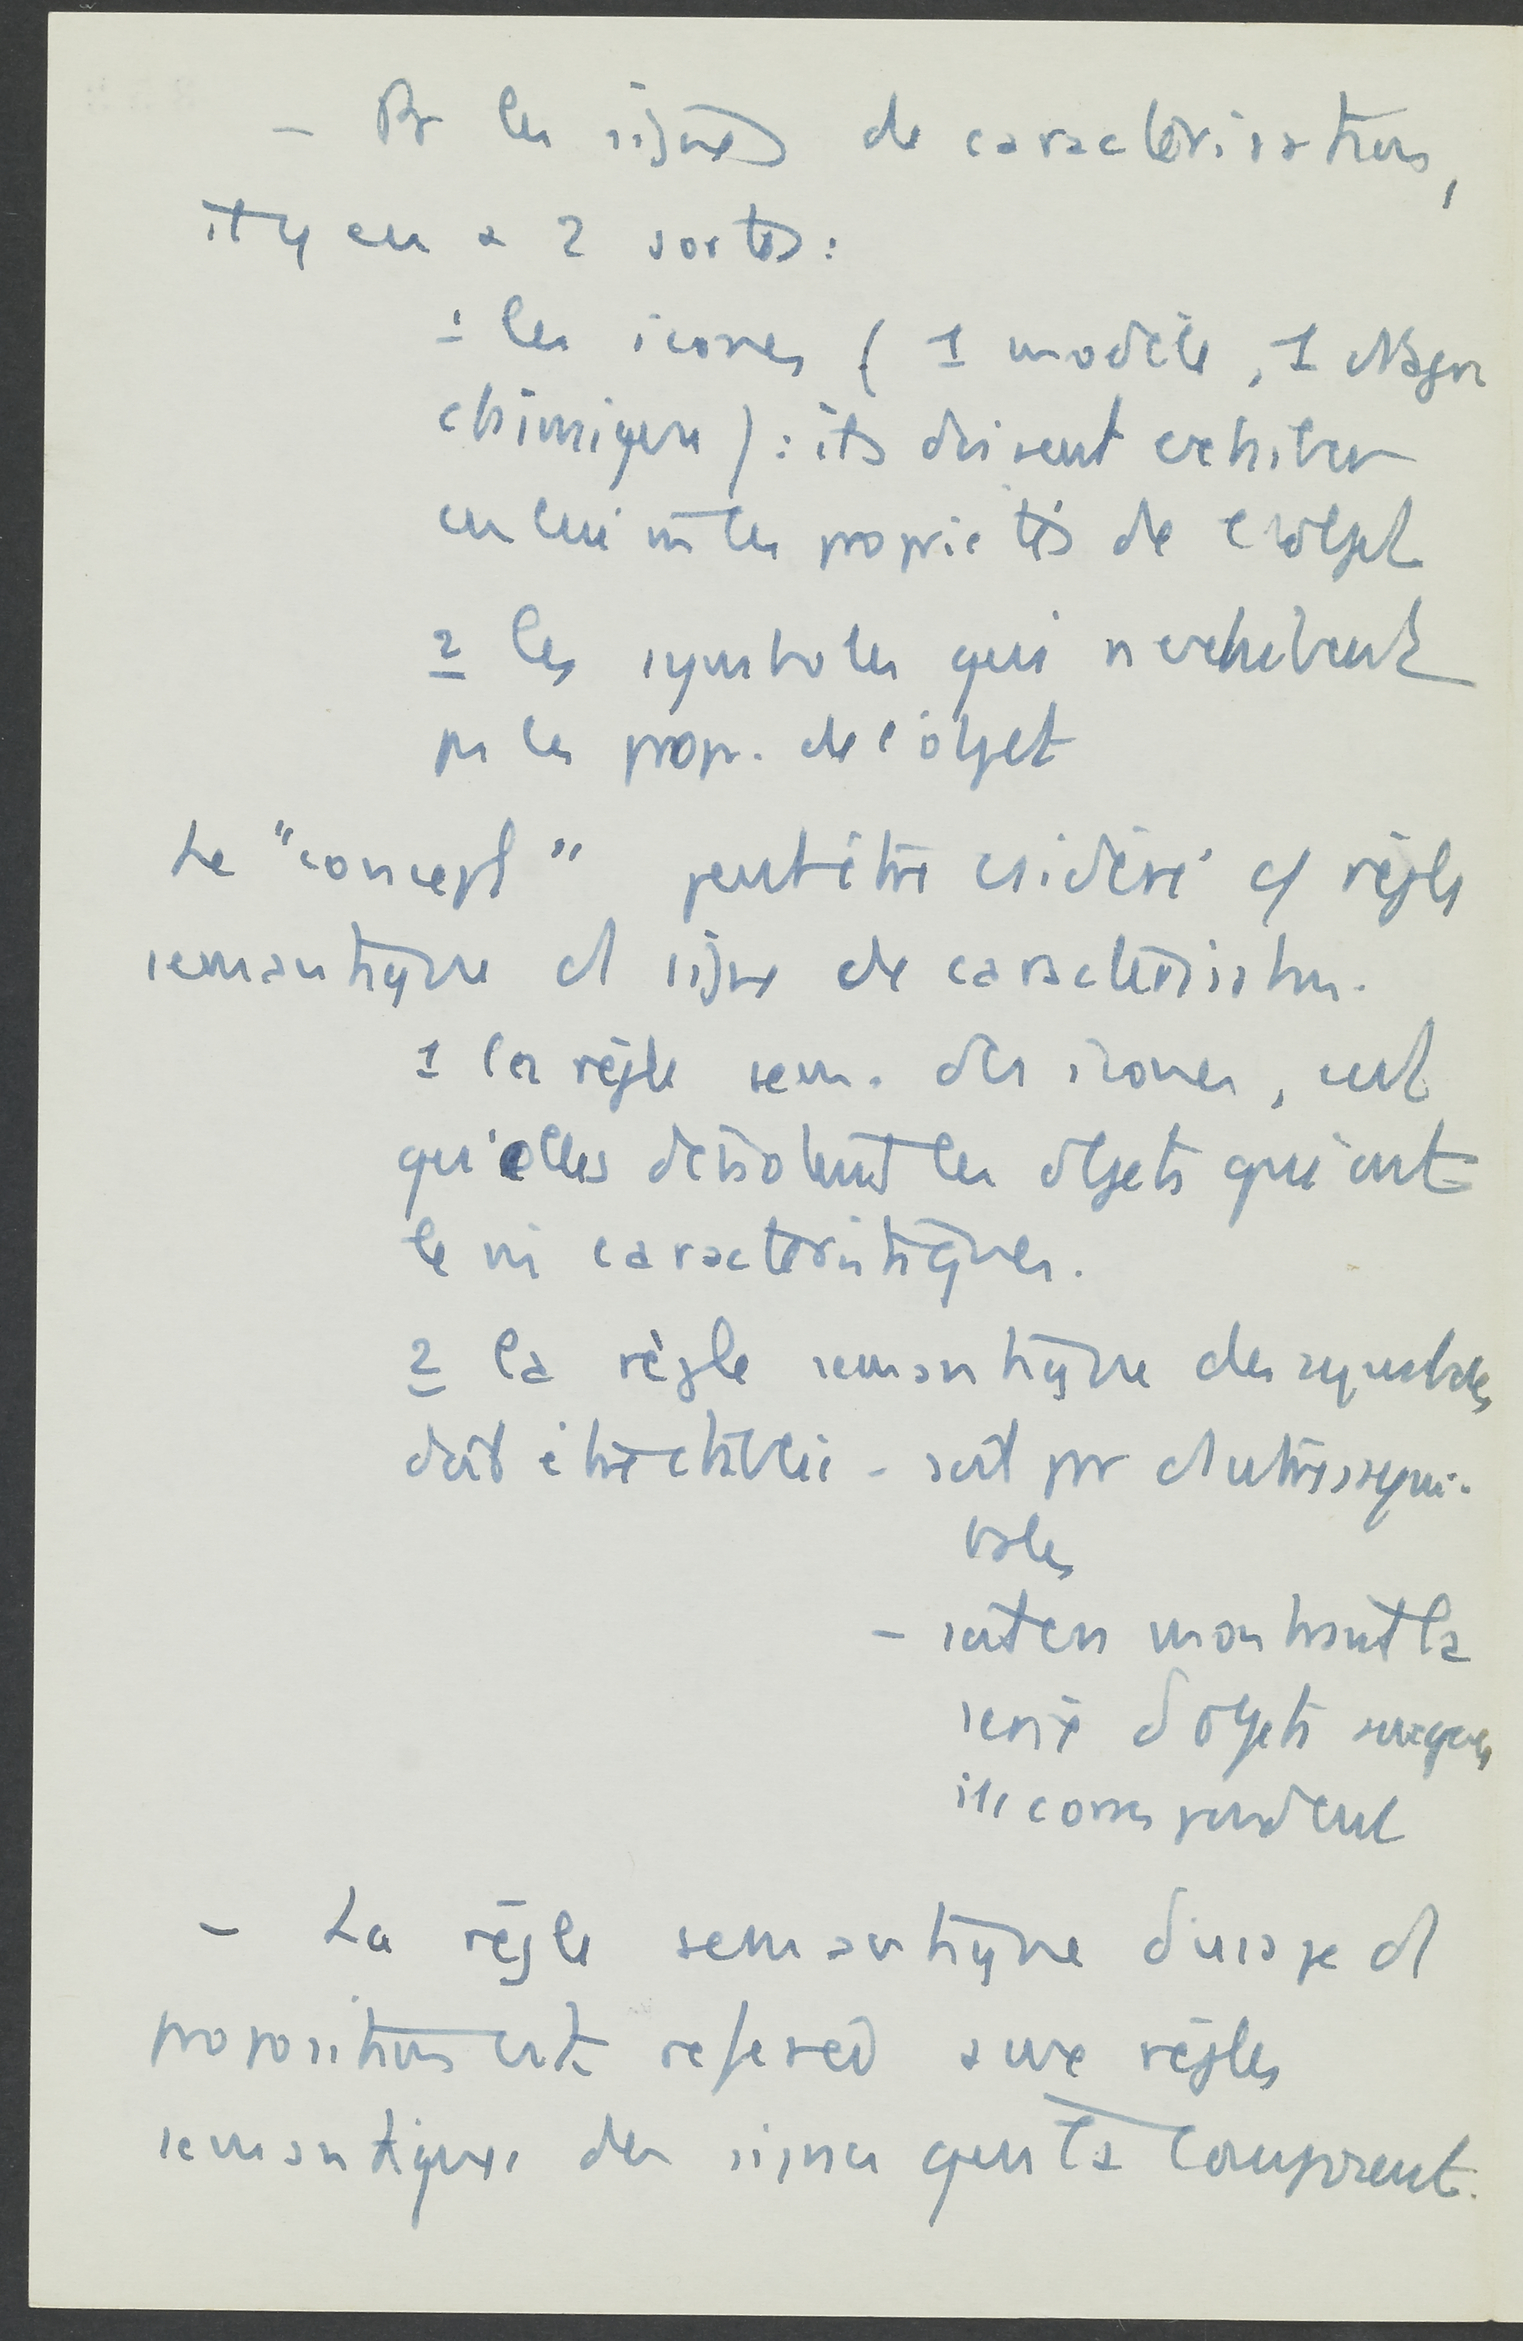 – Pr les signes de caractérisation,
il y en a 2 sortes :
1 les icones ( 1 modèle, 1 diagr
chimique ) : ils doivent exhiber
en lui m les propriétés de l'objet
2 les symboles qui n'exhibent
pas les propr. de l'objet
Le "concept" peut être csidéré c/ règle
semantique d'1 signe de caractérisation.
1 la règle sem. des icones, c'est
qu'elles dénotent les objets qui ont
le m caracteristiques.
2 la règle semantique des symboles
doit être établie – soit par d'autres sym-
boles
– soit en montrant la
serie d'objets auxquels
ils correspondent
– La règle semantique d'usage d'1
proposition est référée aux règles
semantiques des signes qui la composent.